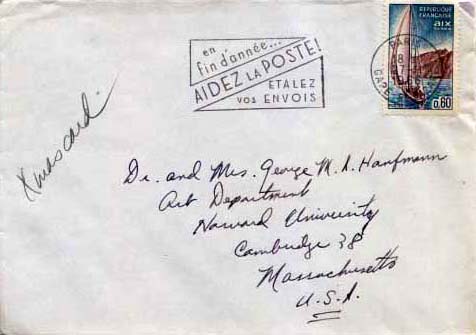 en
fin d'année...
AIDEZ LA POSTE!
ETALEZ
VOS ENVOIS
REPUBLIQUE
FRANÇAISE
aix
les bains
PARIS
18
GARE
0,60
Xmas card
Dr. and Mrs. George M. A. Hanfmann
Art Department
Harvard University
Cambridge 38
Massachusetts
U.S.A.